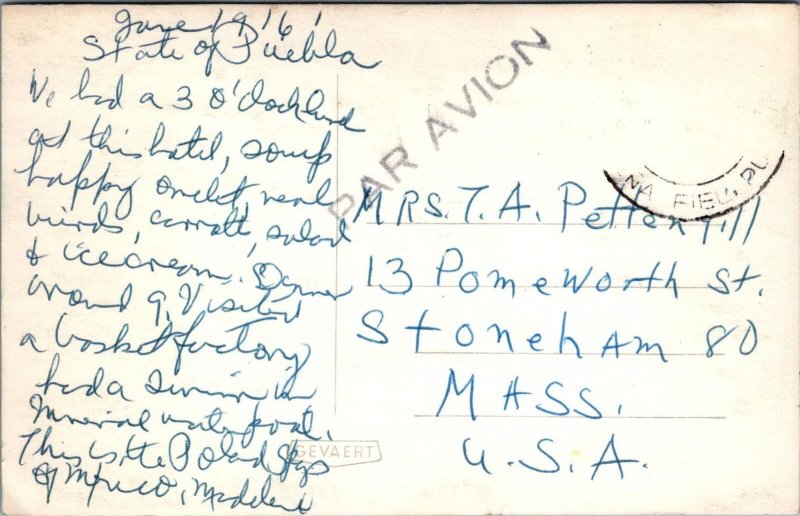 June 19 '61
State of Puebla
We had a 3 O'clock lunch
at this hotel, soup
happy omelet, veal
birds, carrott, salad
& ice cream. Dinner
around 9. Visited
a basket factory
had a swim in
mineral water pool.
This is the Poland Spgs
of Mexico, Madeline
PAR AVION
MRS. T. A. Pettengill
13 Pomeworth St.
Stoneham 80
MASS.
U.S.A.
NA FIEL, PU
GEVAERT